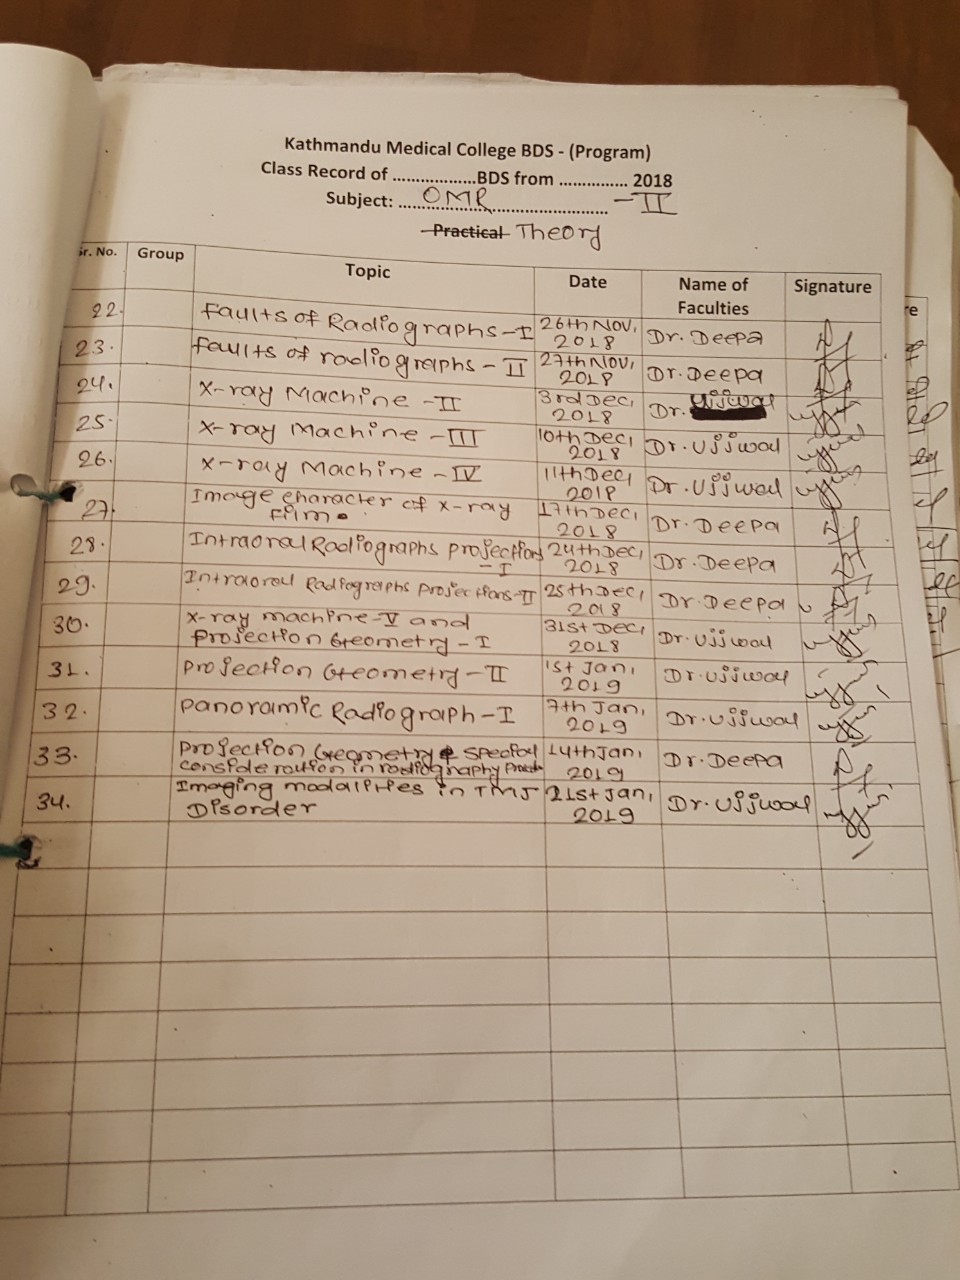 Kathmandu Medical College BDS - (Program)
Class Record of ..................BDS from ............... 2018
Subject: ...OMR......................... -II
Practical Theory
Sr. No. Group Topic Date Name of Faculties Signature
22. Faults of Radiographs-I 26th Nov, 2018 Dr. Deepa
23. faults of radiographs - II 27th Nov, 2018 Dr. Deepa
24. X-ray Machine -II 3rd Dec, 2018 Dr. Ujjwal
25. X-ray Machine -III 10th Dec, 2018 Dr. Ujjwal
26. X-ray Machine -IV 11th Dec, 2018 Dr. Ujjwal
27. Image character of x-ray film. 17th Dec, 2018 Dr. Deepa
28. Intraoral Radiographs projections - I 24th Dec, 2018 Dr. Deepa
29. Intraoral Radiographs projections-II 25th Dec, 2018 Dr. Deepa
30. X-ray machine-V and projection Geometry - I 31st Dec, 2018 Dr. Ujjwal
31. projection Geometry-II 1st Jan, 2019 Dr. Ujjwal
32. panoramic Radiograph-I 7th Jan, 2019 Dr. Ujjwal
33. projection Geometry & special consideration in radiography 14th Jan, 2019 Dr. Deepa
34. Imaging modalities in TMJ Disorder 21st Jan, 2019 Dr. Ujjwal